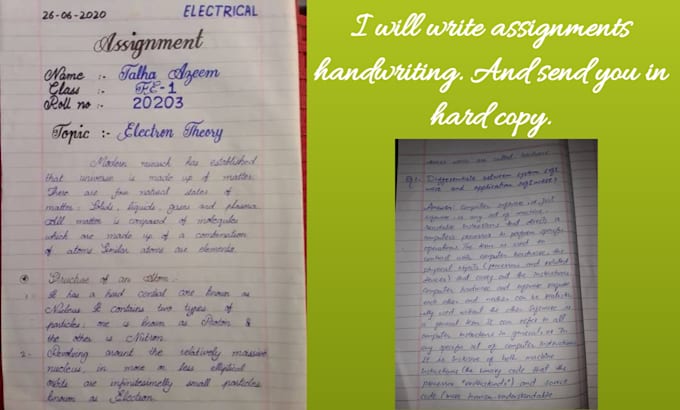 26-06-2020 ELECTRICAL
Assignment
Name :- Talha Azeem
Class :- F.E-1
Roll no :- 20203
Topic :- Electron Theory
Modern research has established
that universe is made up of matter.
There are four natural states of
matter: Solids, liquids, gases and plasma
All matter is composed of molecules
which are made up of a combination
of atoms. Similar atoms are elements.
Structure of an Atom:-
1. It has a hard central core known as
Nucleus. It contains two types of
particles; one is known as Proton &
the other is Nutron.
2. Revolving around the relatively massive
nucleus, in more or less elliptical
orbits are infinitesimelly small particles
known as Electron.
I will write assignments
handwriting. And send you in
hard copy.
Differentiate between system
and application software?
Answer: Computer software or just
software is any set of machine
readable instructions that directs a
computer's processor to perform specific
operations. The term is used to
contrast with computer hardware, the
physical objects (processor and related
devices) that carry out the instructions.
Computer hardware and software require
each other and neither can be
used without the other. Software is
a general term. It can refer to all
computer instructions in general or to
any specific set of computer instructions.
It is inclusive of both machine
instructions (the binary code that the
processor "understands") and source
code (more human understandable